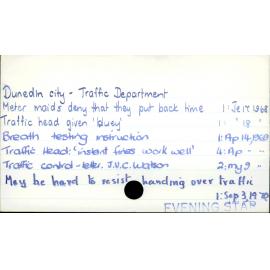 Dunedin city - Traffic Department
Meter maids deny that they put back time 1: Je 17 1968
Traffic head given 'bluey' 1: " 18 "
Breath testing instruction 1: Ap 14, 1969
Traffic Head: 'instant fines work well' 4: Ap " "
Traffic control - letter. J.V.C. Watson 2: my 9 " "
May be hard to resist handing over traffic
1: Sep 3, 19
EVENING STAR